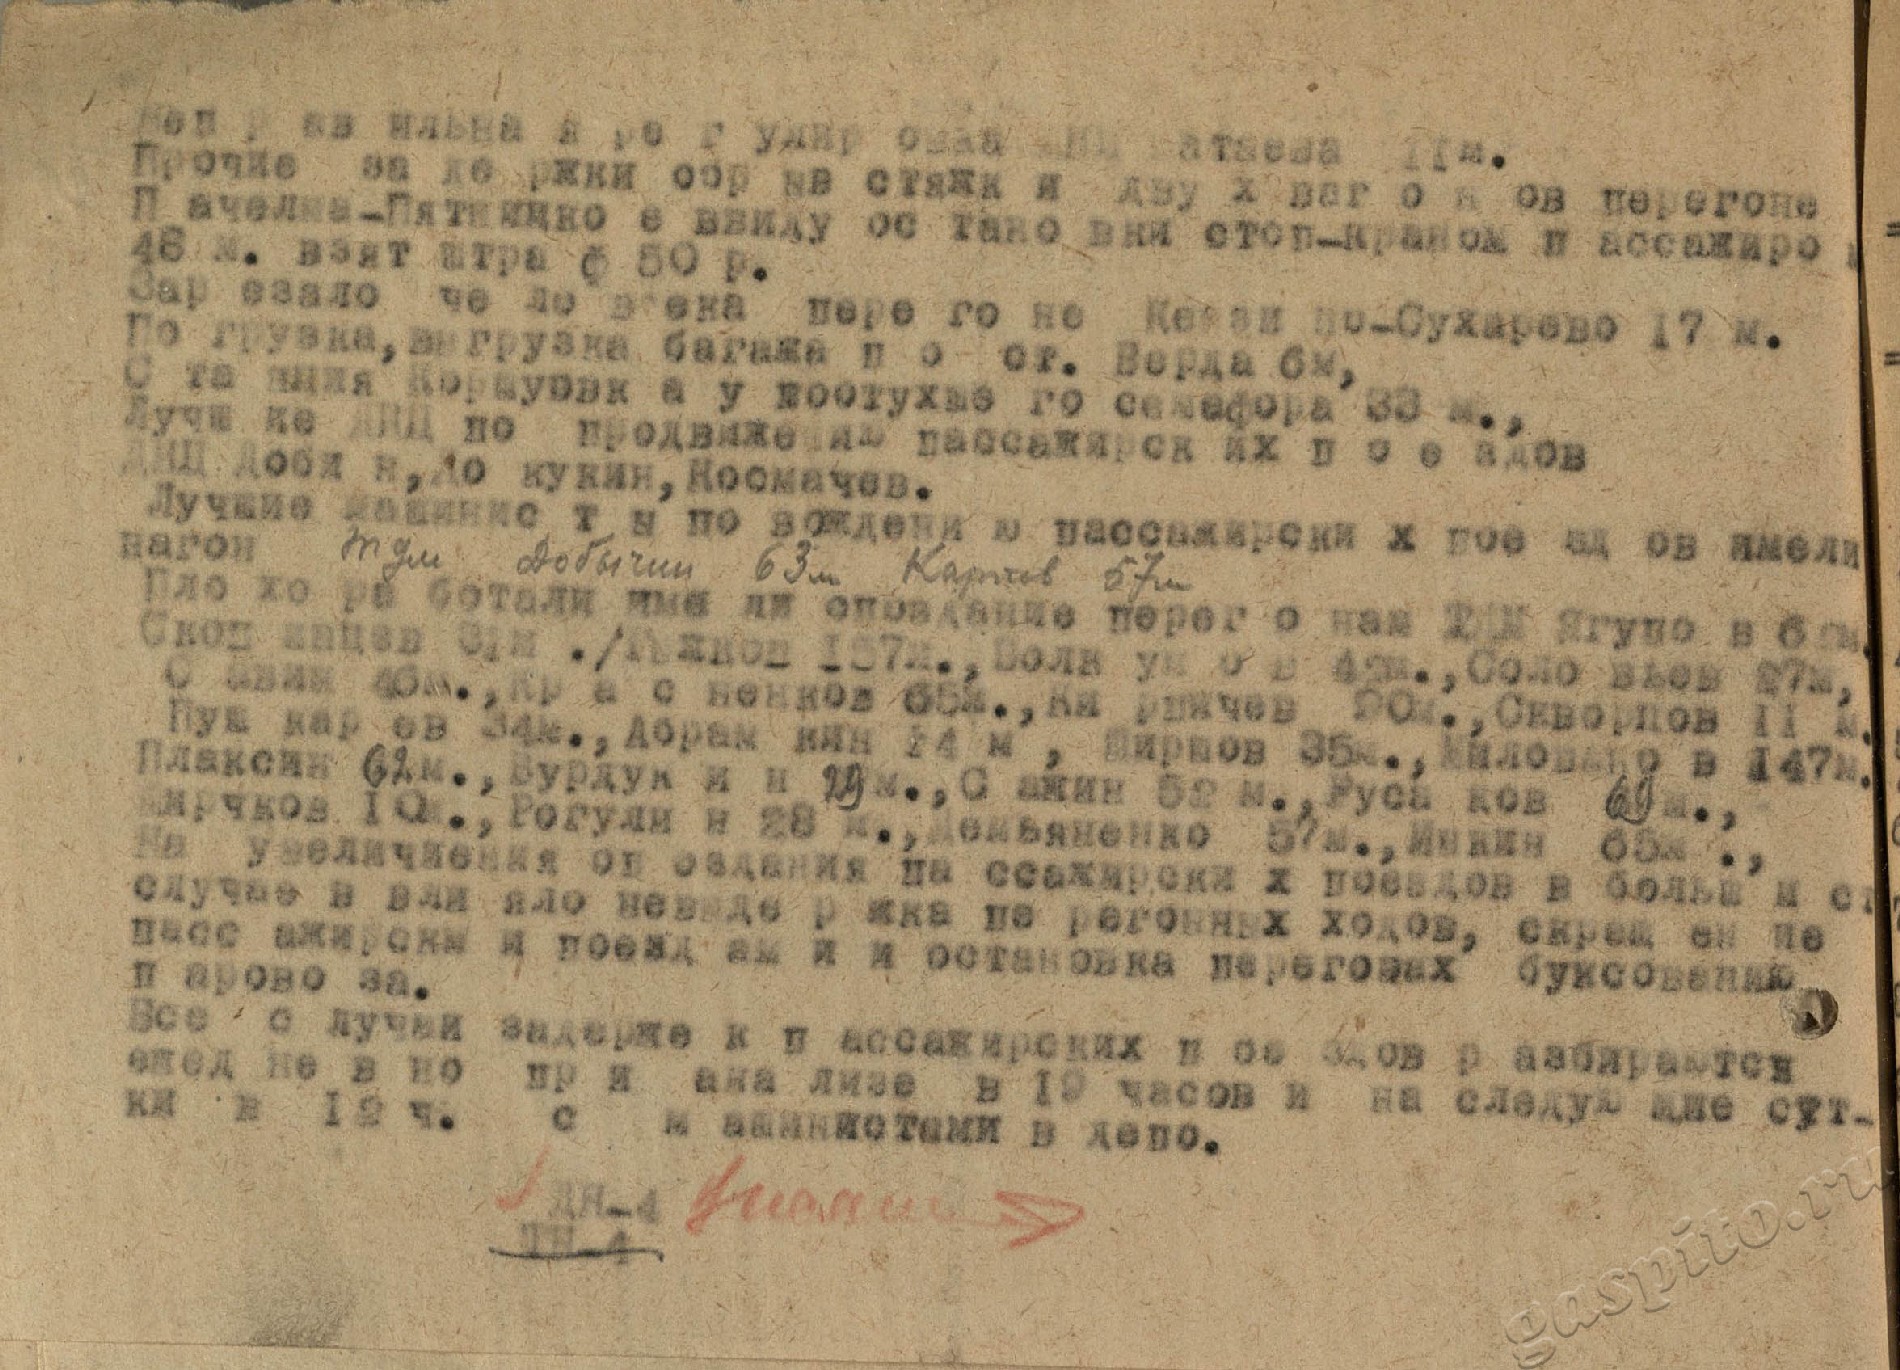 Неп р ав ильна я ре г улир овка ДНЦ атаева 11м.
Прочие за де ржки обр ыв стяжк и дву х ваг о н ов перегоне
П ачелма-Пятницко е ввиду ос тано вки стоп-краном п ассажиро
48 м. взят штра ф 50 р.
Зар езало че ло века пере го не Кензи но-Сухарево 17 м.
По грузка,выгрузка багажа п о ст. Верда 6м,
С та нция Коршуовк а у потухше го семафора 33 м.,
Лучш ие ДНЦ по продвижению пассажирск их п о е здов
ДНЦ Доби н,До кукин,Космачев.
Лучшие машинис т ы по вождени ю пассажирски х пое зд ов имели
нагон тдм Добычин 63м Карпов 57м
Пло хо ра ботали име ли опоздание перег о нам ТДМ Ягупо в
Скоп инцев 61м ./Тыжнов 157м.,Волк ун о в 42м.,Соло вьев 27м,
С авин 46м.,Кр а с ненков 65м.,Ки рпичев 20м.,Скворцов 11 м.
Пуш кар ев 34м.,Абрам кин 24 м , Ширшов 35м.,Миловано в 147м.
Плаксин 62м.,Бурдук и н 29м.,С ажин 52 м.,Руса ков 69м.,
10м.,Рогули н 28 м.,Демьяненко 57м.,Шикин 65м .,
На увеличнения оп оздания па ссажирски х поездов в больш и ст
случае в вли яло невыде р жка пе регонных ходов, скрещ ен ие
пасс ажирски м и поезд ам и и остановка перегонах буксованию
п арово за.
Все с лучаи задерже к п ассажирских п ое здов р азбираются
ежед не в но пр и ана лизе в 19 часов и на следую щие сут-
ки в 12 ч. с м ашинистами в депо.
ДН-4
ДН-4
gaspito.ru